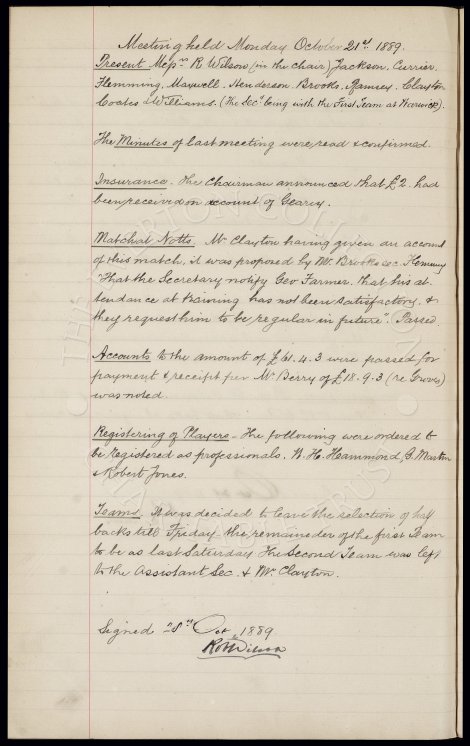 Meeting held Monday October 21st 1889.
Present Messrs R Wilson (in the chair) Jackson. Currier.
Flemming, Maxwell. Henderson. Brooks. Ramsey. Clayton
Coates & Williams. (The Secy being with the First Team at Warwick).
The Minutes of last meeting were read & confirmed.
Insurance. The Chairman announced that £2. had
been received on account of Geary.
Match at Notts. Mr Clayton having given an account
of this match, it was proposed by Mr. Brooks sec Flemming
"That the Secretary notify Geo Farmer. that his at-
tendance at training has not been satisfactory. &
they request him to be regular in future". Passed.
Accounts to the amount of £61.4.3 were passed for
payment & receipt per Mr Berry of £18.9.3 (re
was noted
Registering of Players - The following were ordered to
be registered as professionals. W. H. Hammond, G. Martin
& Robert Jones.
Teams. It was decided to leave the selection of half
backs till Friday the remainder of the first Team
to be as last Saturday. The Second Team was left
to the Assistant Sec. & Mr. Clayton.
Signed 28th Oct 1889
RWilson